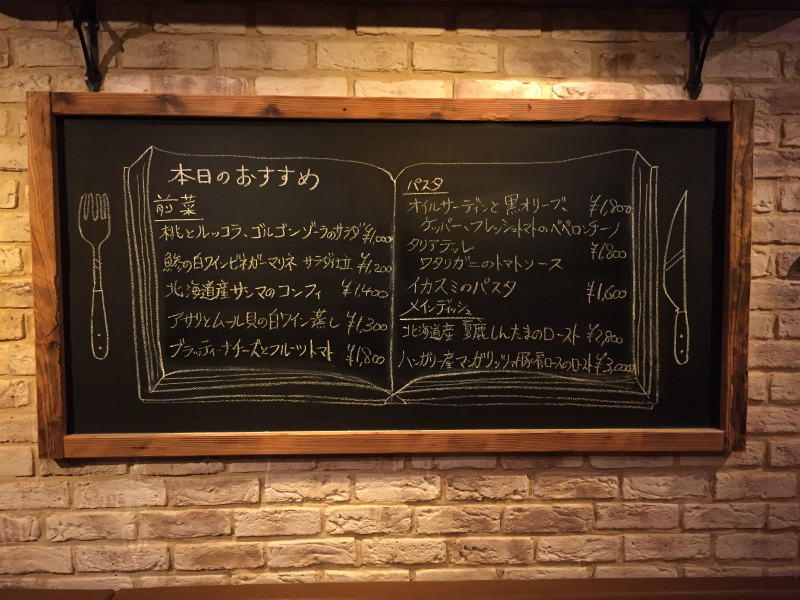 本日のおすすめ
前菜
桃とルッコラ、ゴルゴンゾーラのサラダ ¥1,000
鯵の白ワインビネガーマリネ サラダ仕立 ¥1,200
北海道産サンマのコンフィ ¥1,400
アサリとムール貝の白ワイン蒸し ¥1,300
ブラッティーナチーズとフルーツトマト ¥1,800
パスタ
オイルサーディンと黒オリーブ ¥1,800
ケッパー、フレッシュトマトのペペロンチーノ
タリアテッレ ¥1,800
ワタリガニのトマトソース
イカスミのパスタ ¥1,600
メインディッシュ
北海道産 夏鹿しんたまのロースト ¥2,800
ハンガリー産マンガリッツァ豚肩ロースのロースト ¥3,000